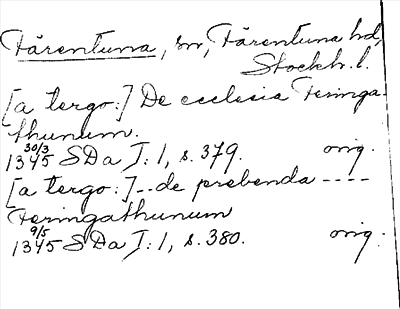 Färentuna, sn, Färentuna hd,
Stockh. l.
[a tergo:] De ecclesia Feringa-
thunum.
30/3
1345 SDa I:1, s. 379. orig.
[a tergo:] -- de prebenda ----
Feringathunum
9/5
1345 SDa I:1, s. 380. orig.